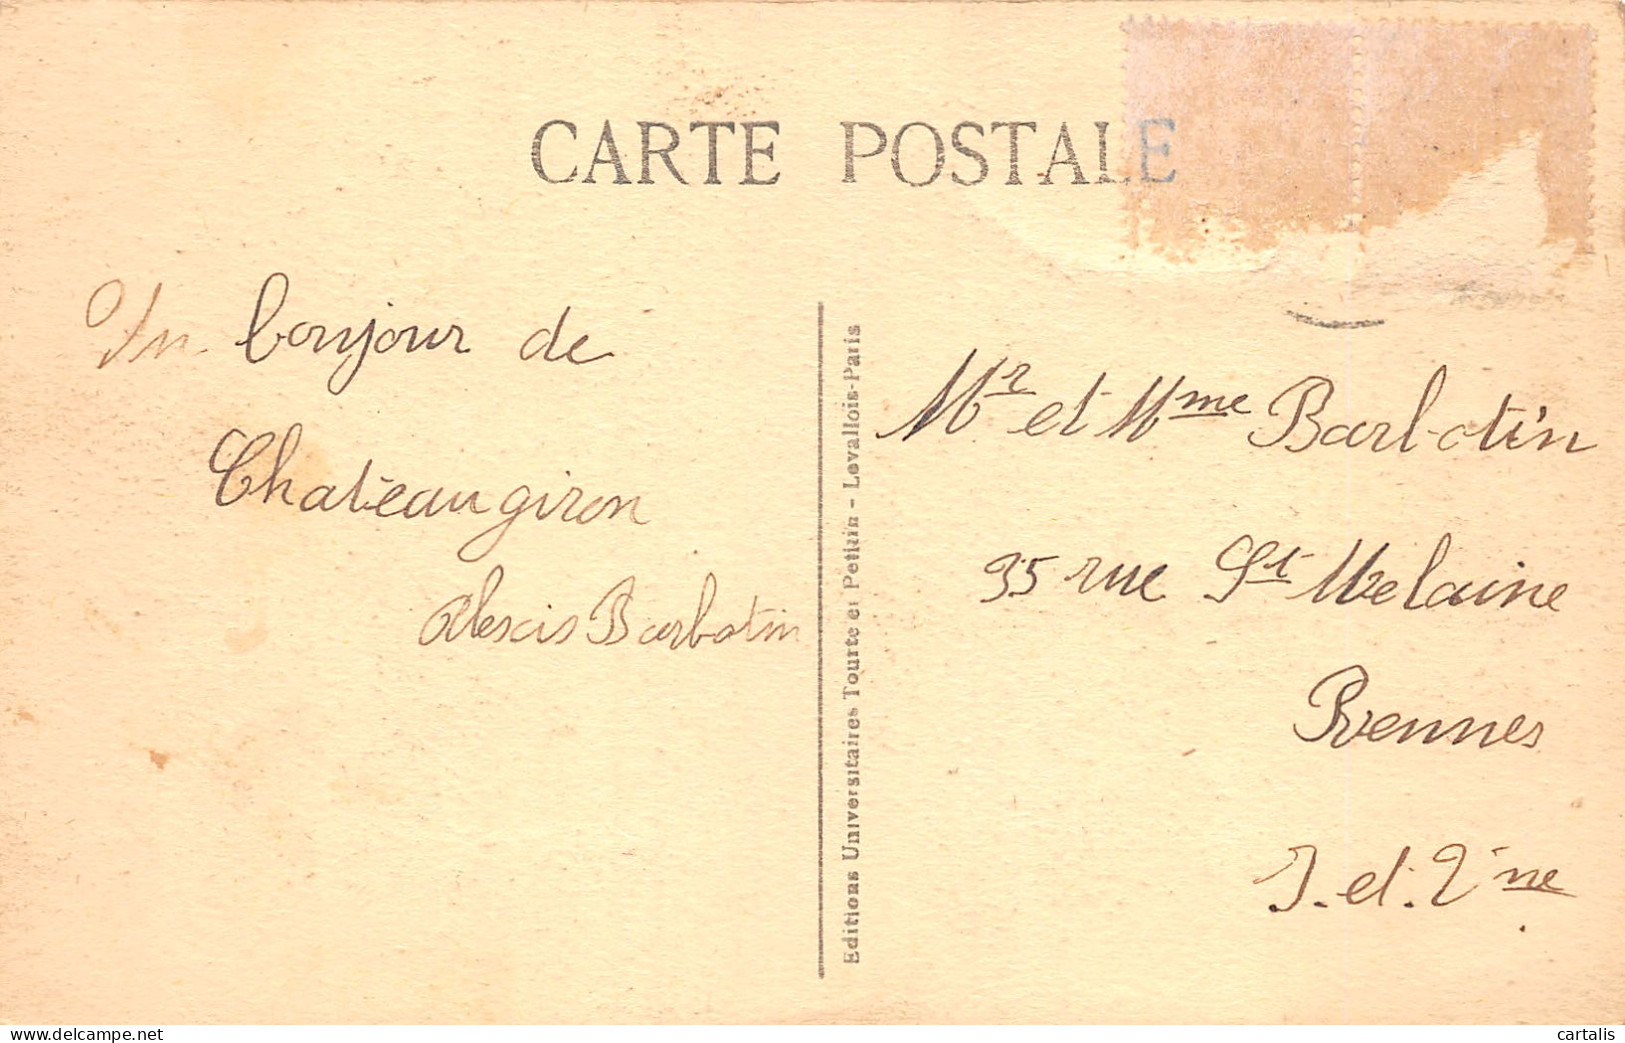 CARTE POSTALE
Un bonjour de
Chateaugiron
Alexis Barbotin
Editions Universitaires Tourte et Petitin - Levallois-Paris
Mr et Mme Barbotin
35 rue St Melaine
Rennes
I. et. V.ne
cartalis